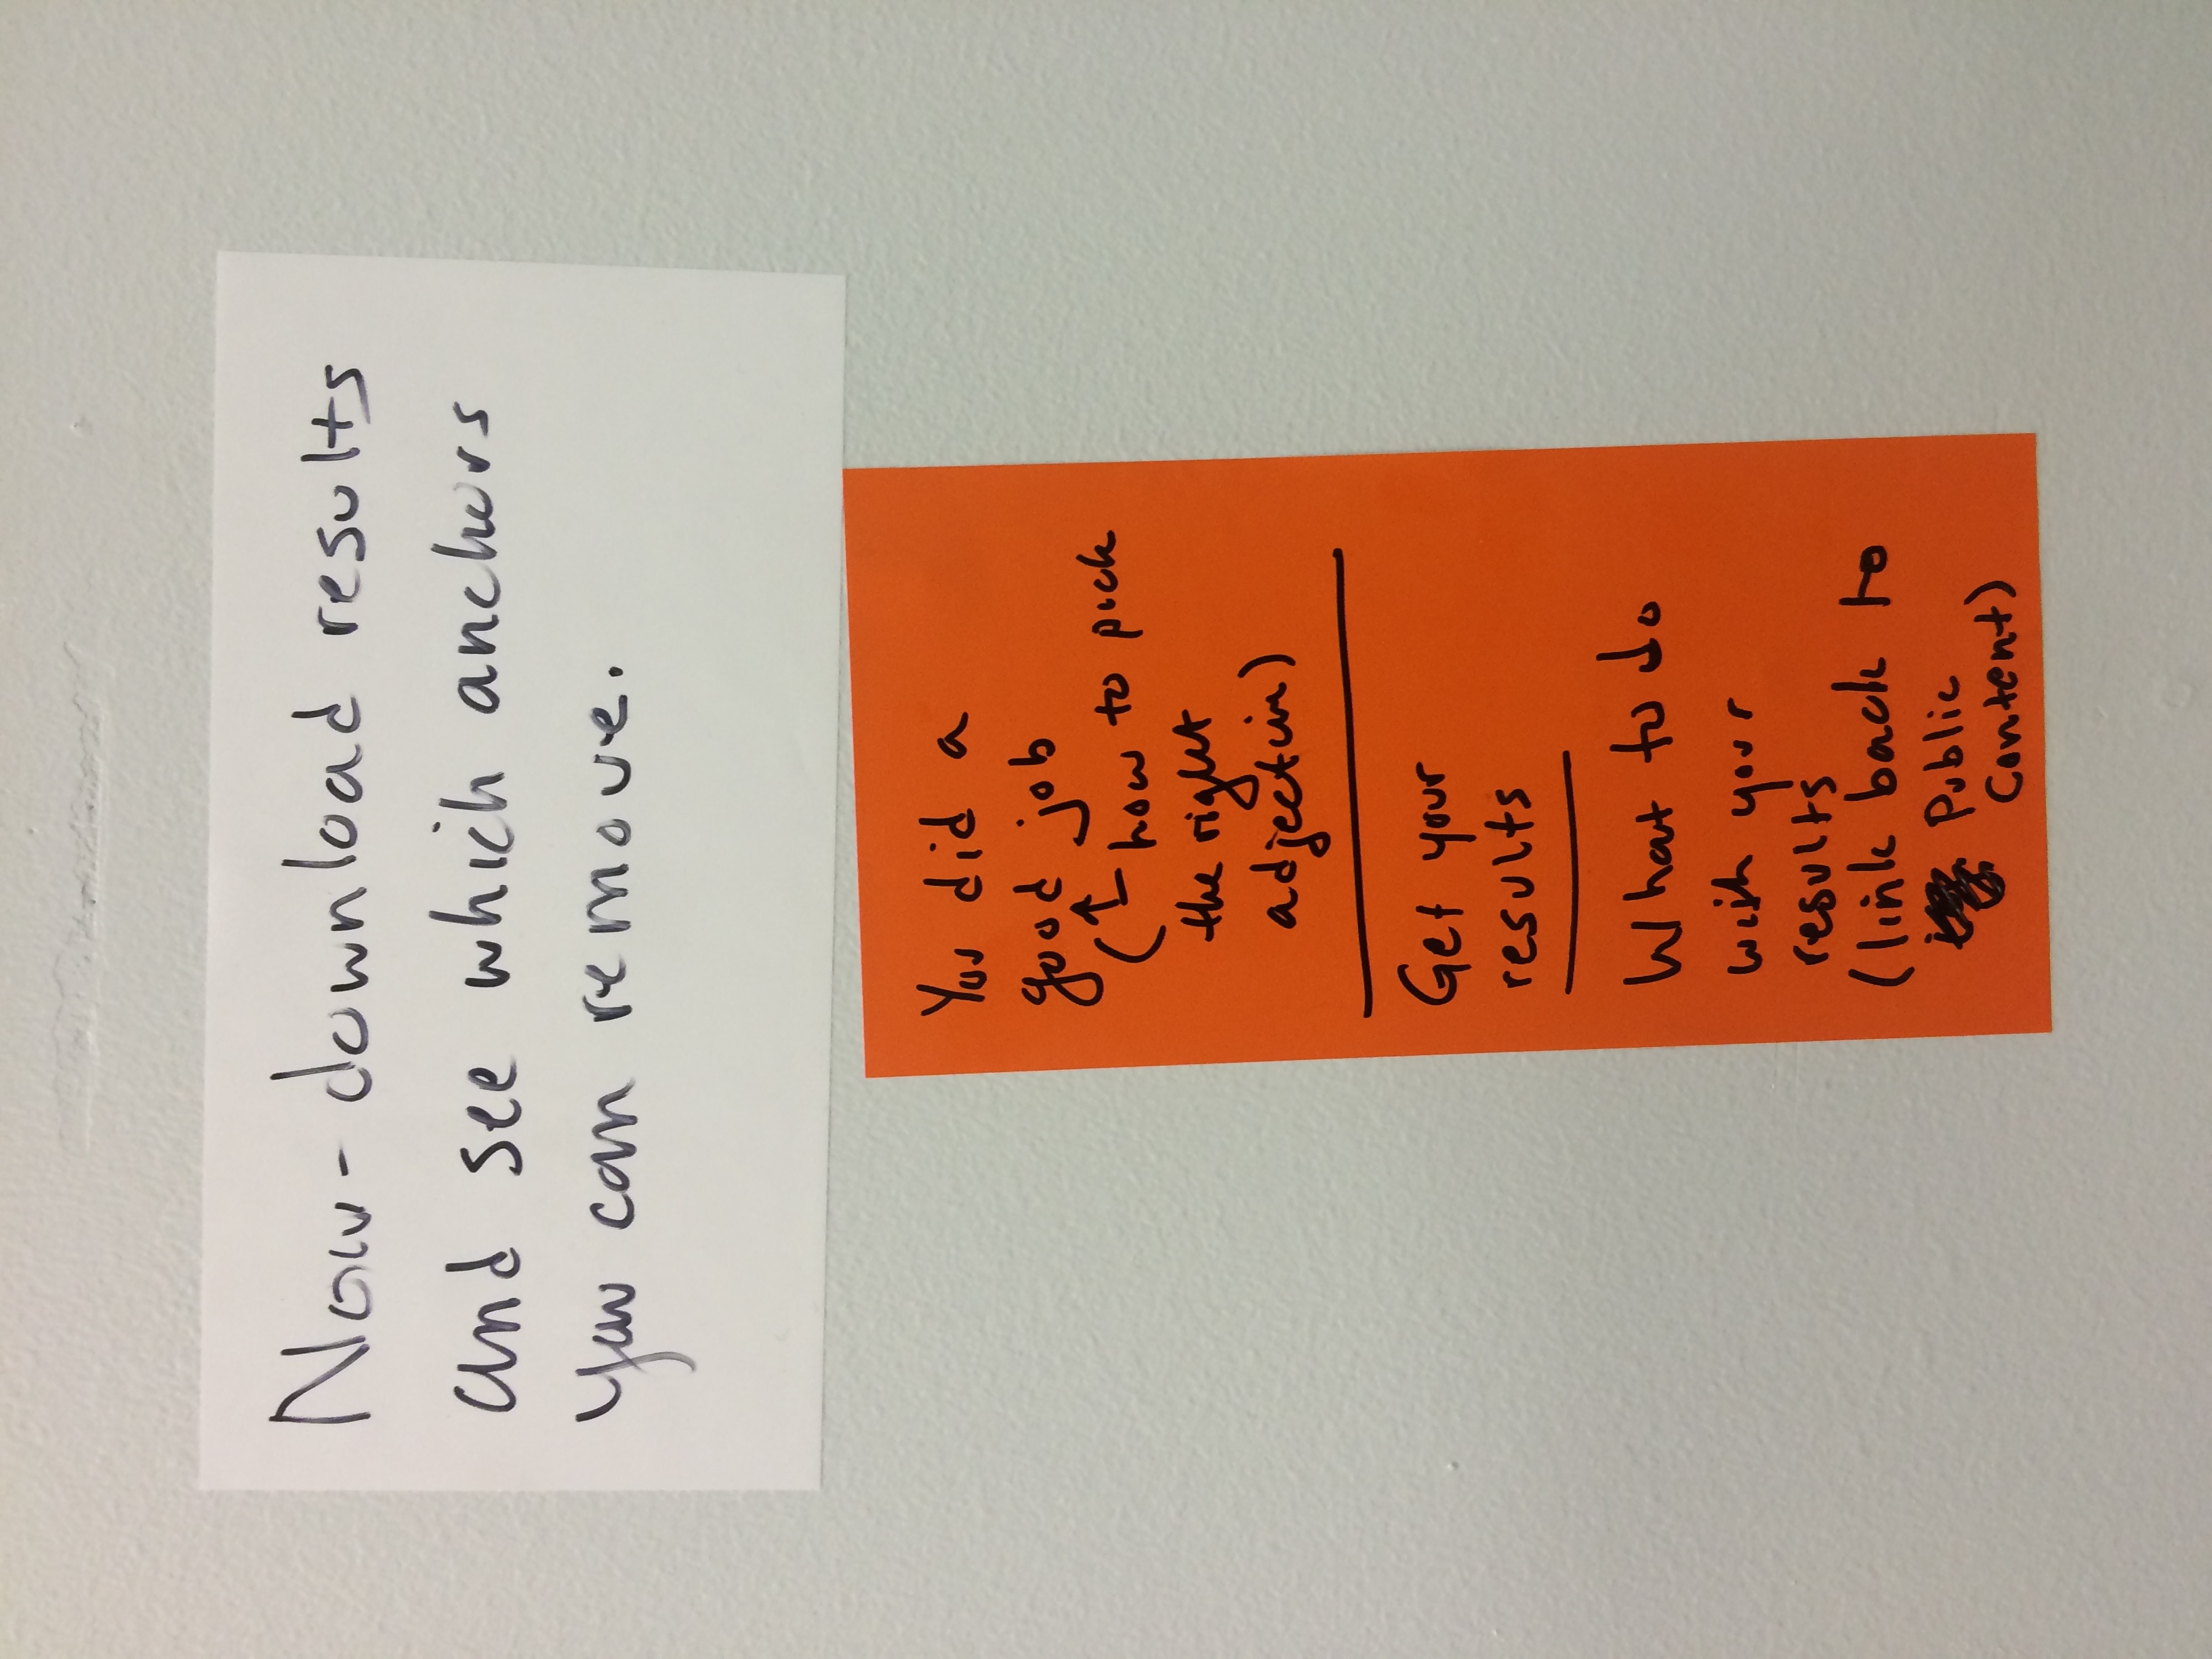 Now - download results
and see which anchors
you can remove.
You did a
good job
(↑ how to pick
the right
adjective)
Get your
results
What to do
with your
results
(link back to
Public
Content)